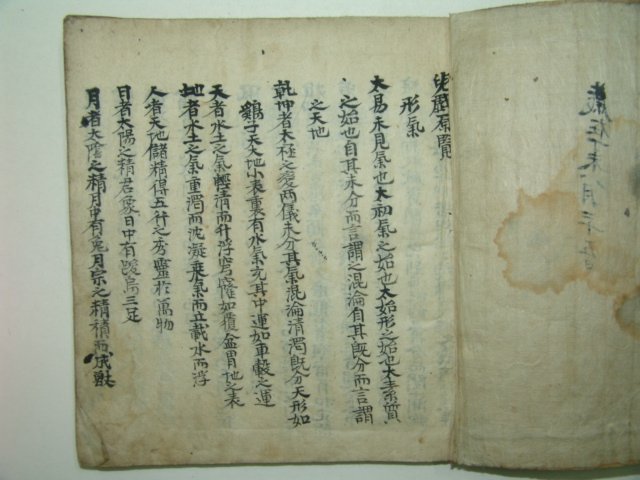 原覽
形氣
太易未見氣也太初氣之始也太始形之始也太素質
之始也自其未分而言謂之混淪自其旣分而言謂
之天地
乾坤者太極之變兩儀未分其氣混淪清濁旣分天形如
鷄子天大地小表裏有水氣充其中運如車轂之運
天者水土之氣輕清而升浮穹窿如覆盆冒地之表
地者水土之氣重濁而沈凝乘氣而立載水而浮
人者天地儲精得五行之秀靈於萬物
日者太陽之精君象日中有踆烏三足
月者太陰之精月中有兎月宗之精積而成獸